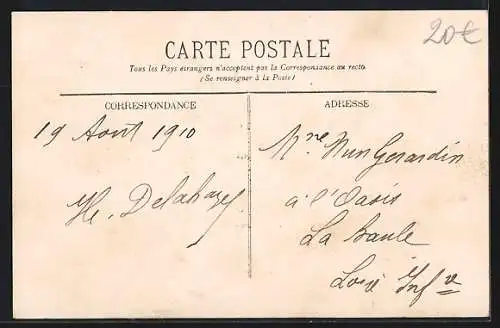 20€
CARTE POSTALE
Tous les Pays étrangers n'acceptent pas la Correspondance au recto
(Se renseigner à la Poste)
CORRESPONDANCE
19 Aout 1910
Delahaye
ADRESSE
à l'Oasis
La Baule
Loire Infre